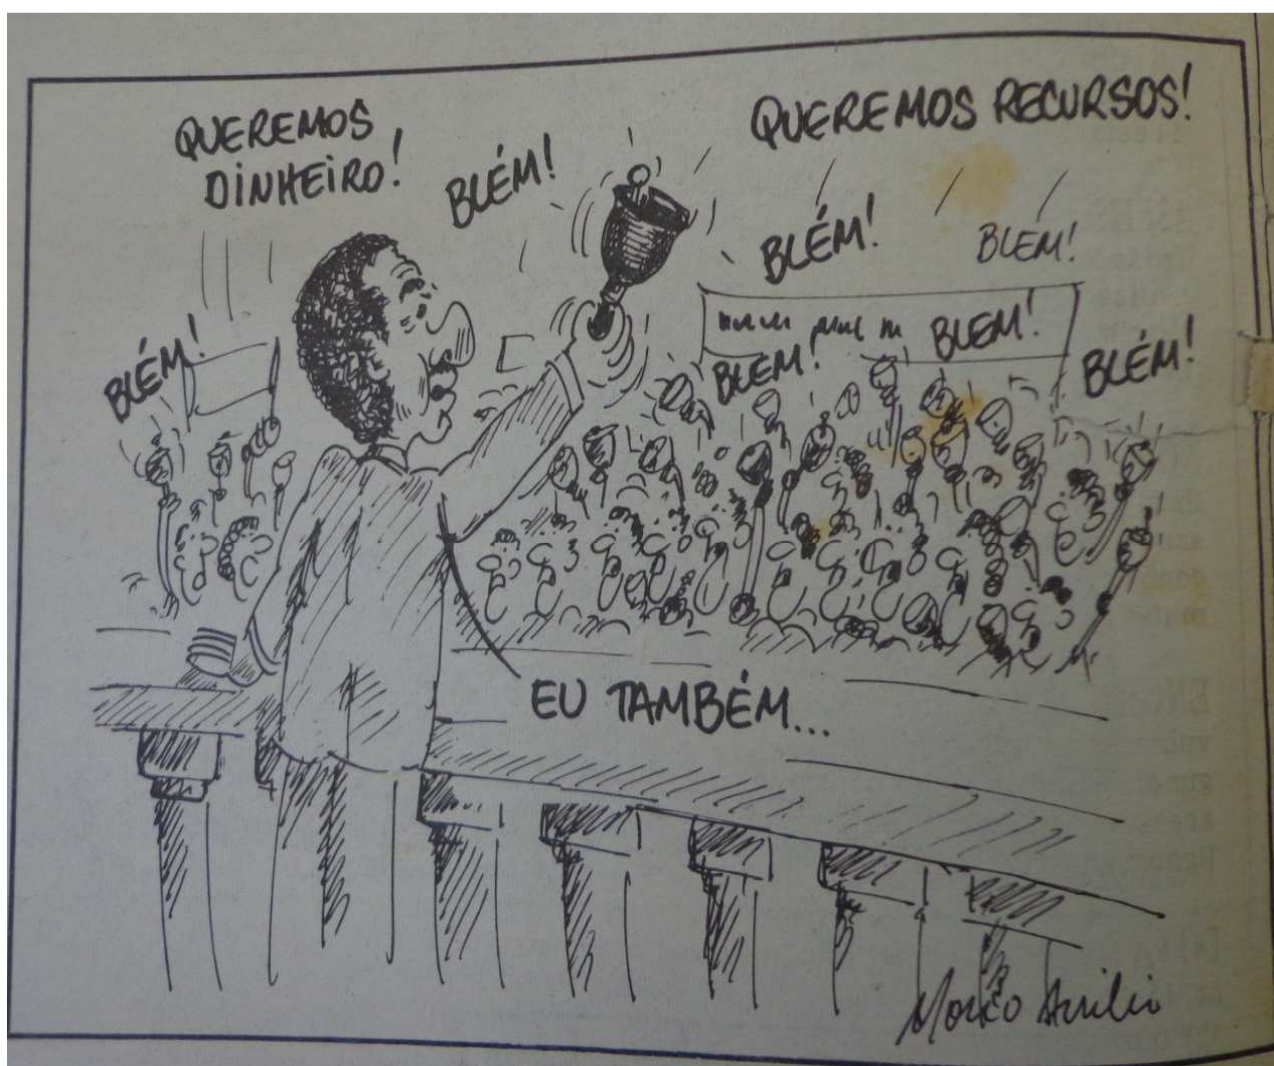 QUEREMOS
DINHEIRO!
QUEREMOS RECURSOS!
BLÉM!
BLÉM!
BLEM!
BLÉM!
BLEM!
BLEM!
BLÉM!
EU TAMBÉM...
Marco Aurélio